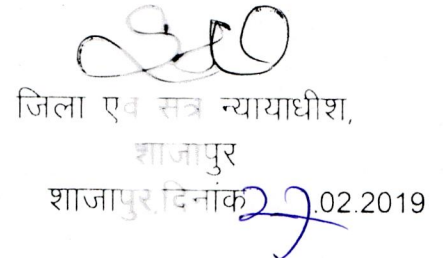 जिला एव सत्र न्यायाधीश,
शाजापुर
शाजापुर,दिनांक27.02.2019